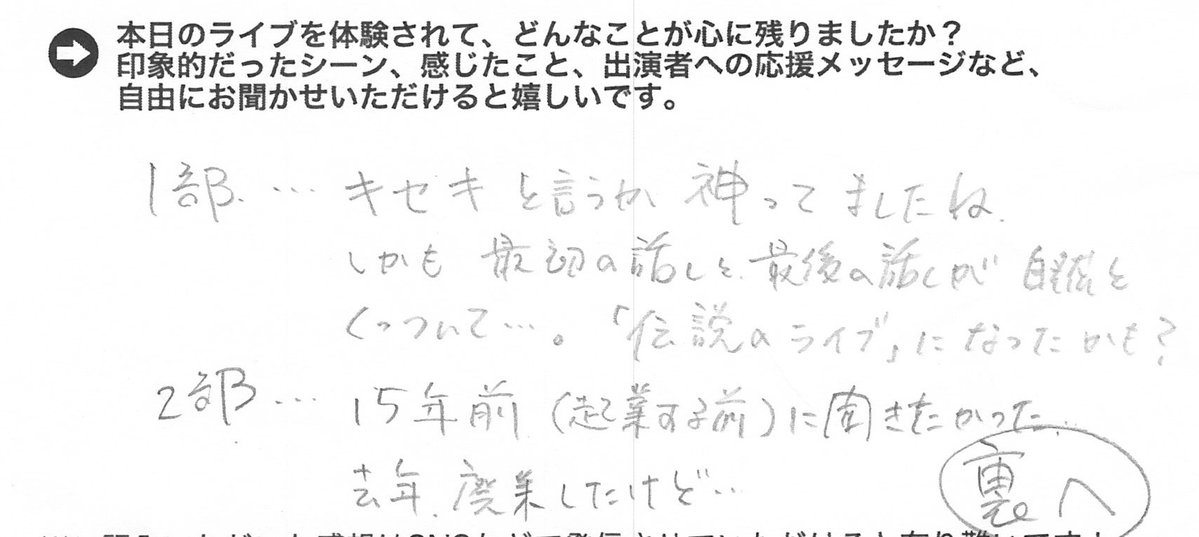 本日のライブを体験されて、どんなことが心に残りましたか?
印象的だったシーン、感じたこと、出演者への応援メッセージなど、
自由にお聞かせいただけると嬉しいです。
1部… キセキと言うか 神ってましたね.
しかも 最初の話しと最後の話しが 自然と
くっついて…。「伝説のライブ」になったかも?
2部… 15年前(起業する前)に聞きたかった…
去年、廃業したけど…
裏へ